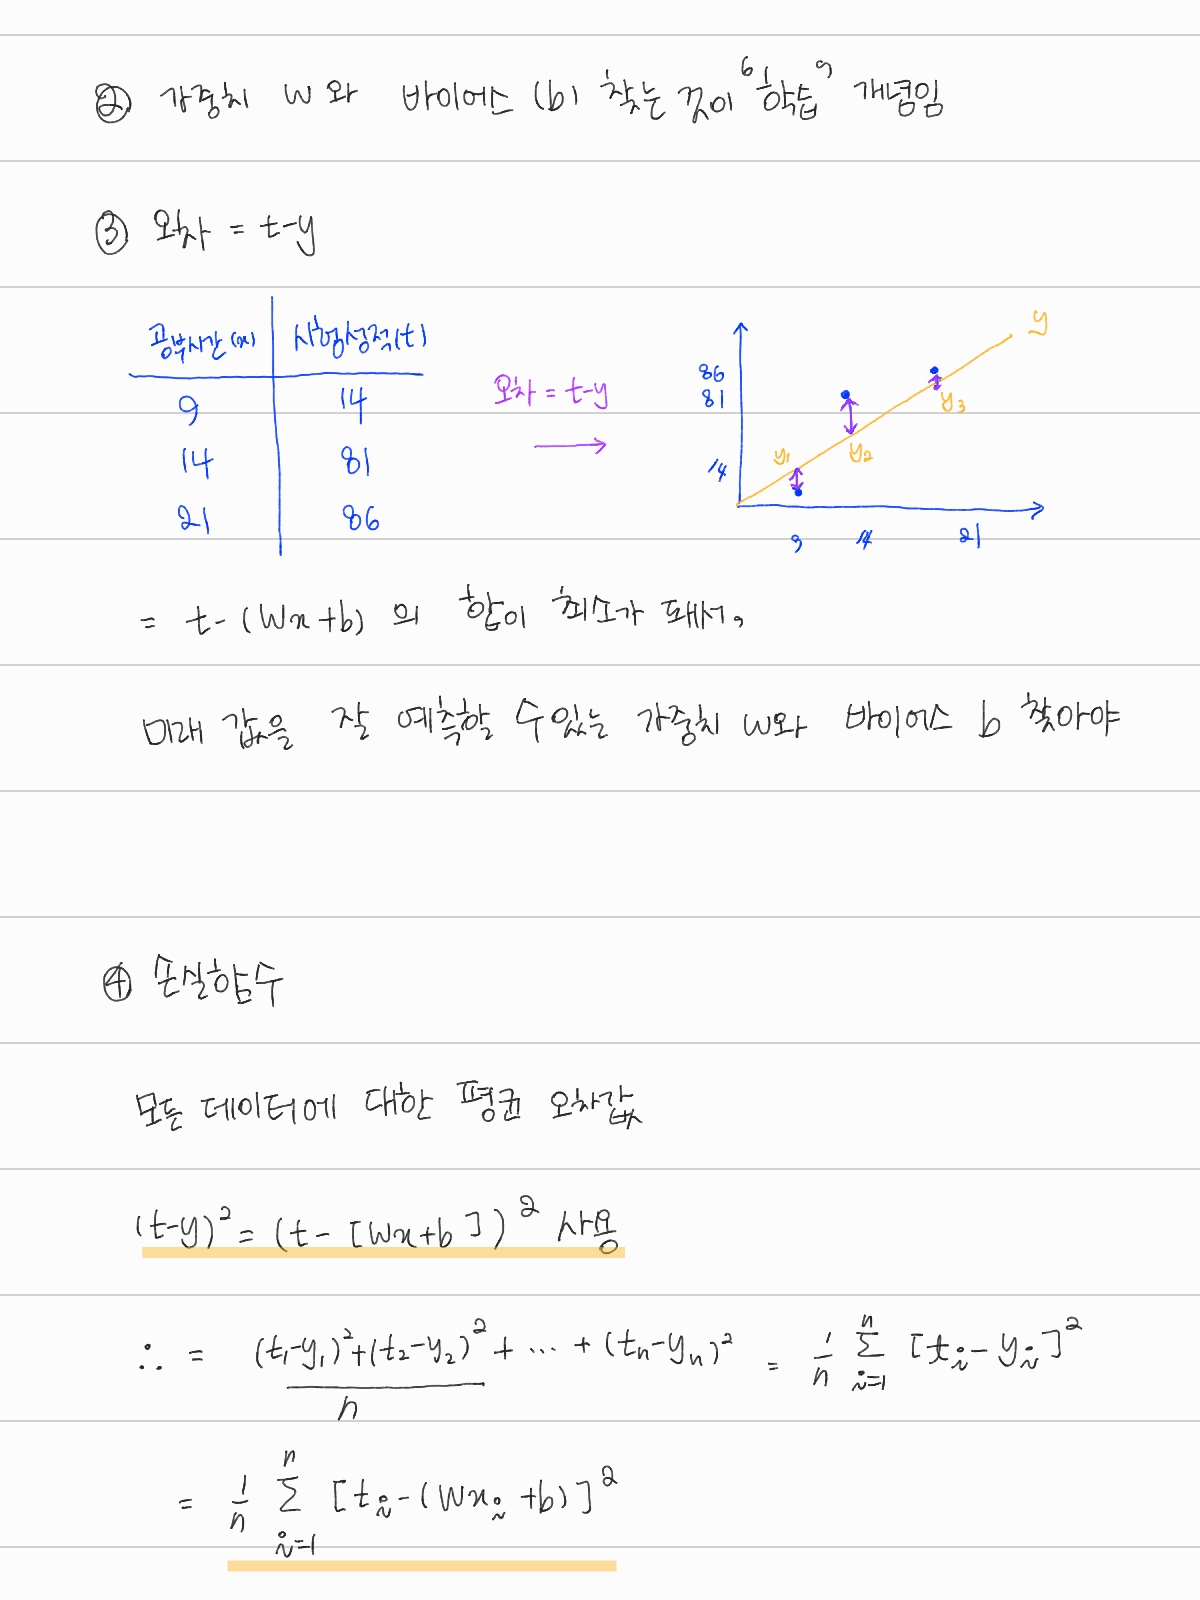 ② 가중치 W와 바이어스 (b) 찾는 것이 "학습" 개념임
③ 오차 = t-y
공부시간(x) 시험성적(t)
9 14
14 81
21 86
오차 = t-y
→
y
86
81
14
y₁
y₂
y₃
9 14 21
= t-(Wx+b) 의 합이 최소가 돼서,
미래 값을 잘 예측할 수 있는 가중치 W와 바이어스 b 찾아야
④ 손실함수
모든 데이터에 대한 평균 오차값
(t-y)² = (t-[Wx+b])² 사용
∴ = (t₁-y₁)²+(t₂-y₂)²+ ... + (tₙ-yₙ)² / n = 1/n Σᵢ₌₁ⁿ [tᵢ-yᵢ]²
= 1/n Σᵢ₌₁ⁿ [tᵢ-(Wxᵢ+b)]²